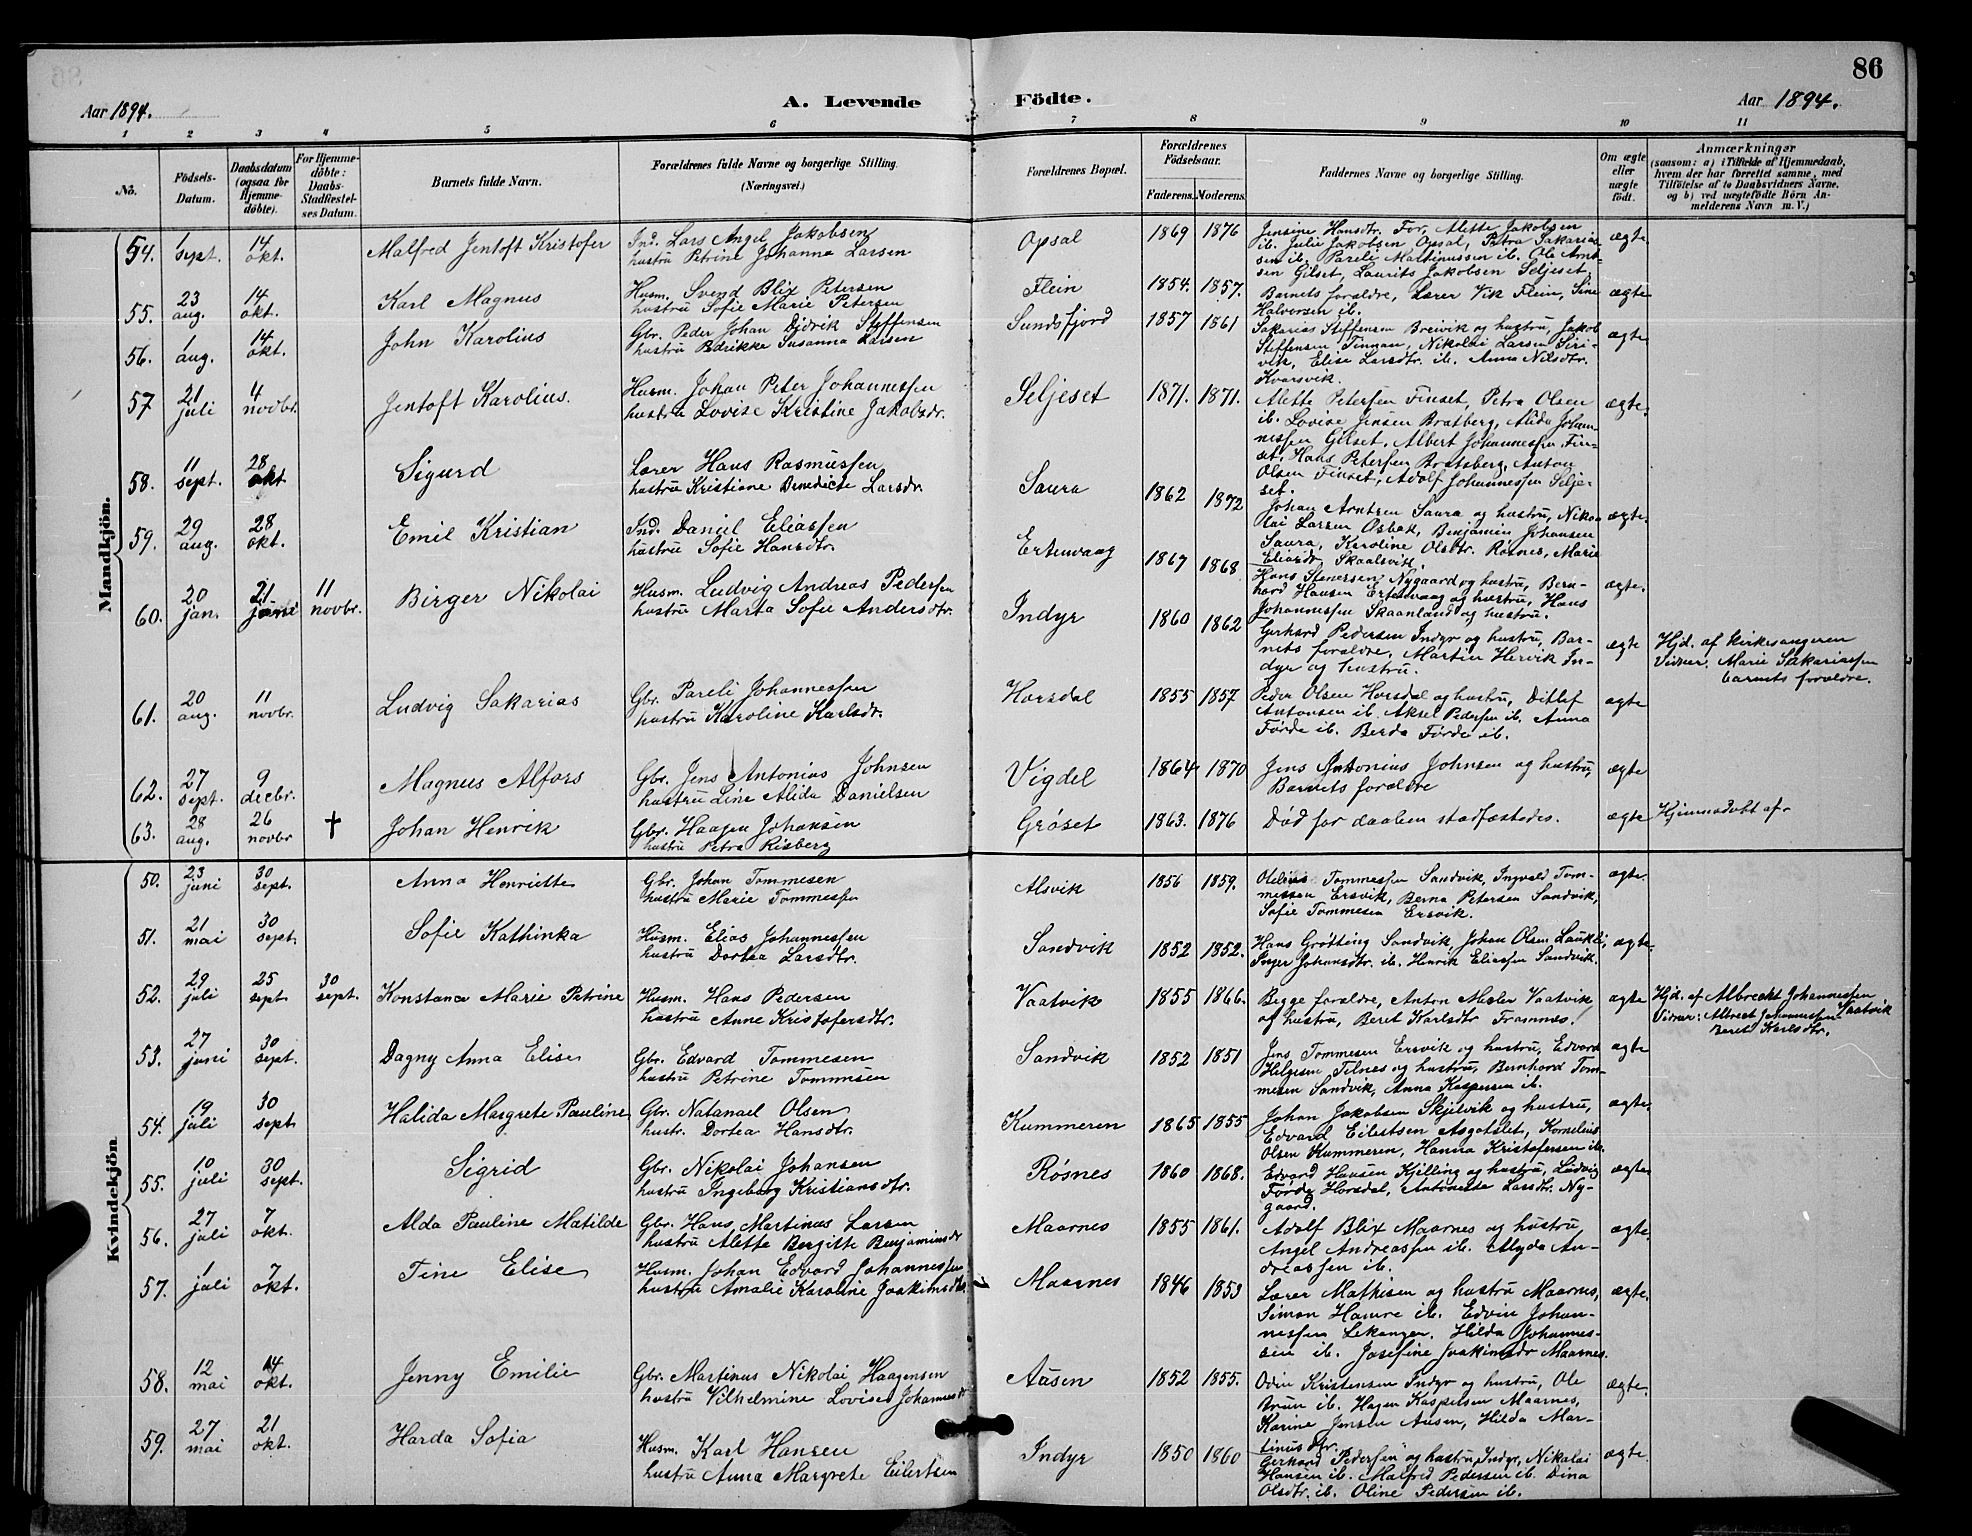 86
Aar 1894.
A. Levende Födte.
Aar 1894.
1 2 3 4 5 6 7 8 9 10 11
No.
Födsels-Datum.
Daabsdatum (ogsaa for Hjemme-döbte).
For Hjemme-döbte: Daabs-Stadfæstel-ses Datum.
Barnets fulde Navn.
Forældrenes fulde Navne og borgerlige Stilling. (Næringsvei.)
Forældrenes Bopæl.
Forældrenes Födselsaar.
Faderens. Moderens.
Faddernes Navne og borgerlige Stilling.
Om ægte eller uægte födt.
Anmærkninger
(saasom: a) i Tilfælde af Hjemmedaab,
hvem der har forrettet samme, med
Tilföielse af to Daabsvidners Navne,
og b) ved uægtefödte Börn An-
melderens Navn m. V.)
Mandkjön.
54. 1 sept. 14 okt. Malfred Jentoft Kristofer
Ind. Lars Angel Jakobsen
hustru Petrine Johanna Larsen
Opsal 1869 1876
Jensine Hansdtr. For, Alette Jakobsen
ib. Julie Jakobsen Opsal, Petra Sakarias-
sen ib. Pareli Martinussen ib. Ole Arnt-
sen Gilset, Laurits Jakobsen Seljeset.
ægte
55. 23 aug. 14 okt. Karl Magnus
Husm. Svend Blix Petersen
hustru Sofie Marie Petersen
Flein 1854. 1857.
Barnets forældre, Lærer Vik Flein, Sine
Halvorsen ib.
ægte
56. 1 aug. 14 okt. John Karolius
Gbr. Peder Johan Didrik Steffensen
hustru Susanna Larsen
Sundsfjord 1857 1861
Sakarias Steffensen Breivik og hustru, Jakob
Steffensen Finman, Nikolai Larsen Siri-
vik, Elise Larsdtr. ib. Anna Nilsdtr.
Kvarsvik.
ægte
57 21 juli 4 novbr. Jentoft Karolius.
Husm. Johan Peter Johannessen
hustru Lovise Kristine Jakobsdr.
Seljeset 1871. 1871.
Alette Petersen Finset, Petra Olsen
ib. Lovise Jensen Bratberg, Alida Johan-
nessen Gilset, Albert Johannessen Fin-
set. Hans Petersen Bratsberg, Anton
Olsen Finset, Adolf Johannessen Selje-
set.
ægte.
58. 11 sept. 28 okt Sigurd
Lærer Hans Rasmussen
hustru Kristiane Benedicte Larsdr
Saura 1862 1872
Johan Arntsen Saura og hustru, Niko-
lai Larsen Osbak, Benjamin Johansen
Saura, Karoline Olsdtr. Røsnes, Marie
Eliasdr Skaalsvik.
ægte.
59. 29 aug. 28 okt. Emil Kristian
Ind. Daniel Eliassen
hustru Sofie Hansdtr.
Ertenvaag 1867 1868
Hans Stenersen Nygaard og hustru, Bern-
hard Hansen Ertenvaag og hustru, Hans
Johannessen Skaanland og hustru.
ægte.
60. 20 jan. 21 juni 11 novbr. Birger Nikolai
Husm. Ludvig Andreas Pedersen
hustru Marta Sofie Andersdtr.
Indyr 1860 1862
Gerhard Pedersen Indyr og hustru, Bar-
nets forældre, Martin Hervik In-
dyr og hustru.
ægte
Hjd. af kirkesangeren
Vidner, Marie Sakariassen
barnets forældre.
61. 20 aug. 11 novbr. Ludvig Sakarias
Gbr. Pareli Johannessen
hustru Karoline Karlsdtr.
Horsdal 1855 1857
Peder Olsen Horsdal og hustru, Ditlef
Antonsen ib. Aksel Pedersen ib. Anna
Førde ib. Berda Førde ib.
ægte
62. 27 sept. 9 decbr. Magnus Alfors
Gbr. Jens Antonius Johnsen
hustru Line Alida Danielsen
Vigdel 1864 1870
Jens Antonius Johnsen og hustru,
Barnets forældre
ægte
63. 28 aug. 26 novbr † Johan Henrik
Gbr. Haagen Johansen
hustru Petra Risberg
Grøset 1863. 1876
Død før daaben stadfæstedes.
ægte
Hjemmedøbt af
Kvindekjön
50. 23 juni 30 sept. Anna Henriette
Gbr. Johan Tommesen
hustru Marie Tommessen
Alsvik 1856 1859.
Olelius Tommessen Sandvik, Ingvald Tom-
messen Ersvik, Berna Petersen Sandvik,
Sofie Tommesen Ersvik.
ægte.
51. 21 mai 30 sept. Sofie Kathinka
Husm. Elias Johannessen
hustru Dortea Larsdtr.
Sandvik 1852 1852.
Hans Grøtting Sandvik, Johan Olsen Laukli,
Inger Johansdtr. ib. Henrik Eliassen Sandvik.
ægte.
52. 29 juli 25 sept. 30 sept. Konstance Marie Petrine
Husm. Hans Pedersen
hustru Anne Kristofersdtr.
Vaatvik 1855 1866.
Begge forældre, Anton Meløe Vaatvik
og hustru, Beret Karlsdtr Framnes.
ægte
Hjd. af Albrecht Johannessen
Vidner: Albrecht Johannessen Vaatvik
Beret Karlsdtr.
53. 27 juni 30 sept. Dagny Anna Elise
Gbr. Edvard Tommesen
hustru Petrine Tommesen
Sandvik 1852 1851
Jens Tommesen Ersvik og hustru, Edvard
Helgesen Felnes og hustru, Bernhard Tom-
mesen Sandvik, Anna Kaspersen ib.
ægte
54. 19 juli 30 sept. Halida Margrete Pauline
Gbr. Natanael Olsen
hustr. Dortea Hansdtr.
Kummeren 1865 1855
Johan Jakobsen Skjelvik og hustru,
Edvard Eilertsen Asgotslet, Kornelius
Olsen Kummeren, Hanna Kristofersen ib.
ægte.
55. 10 juli 30 sept. Sigrid
Gbr. Nikolai Johansen
hustru Ingeborg Kristiansdtr.
Røsnes 1860 1868.
Edvard Hansen Kjelling og hustru, Ludvig
Førde Horsdal, Antonette Larsdtr. Ny-
gaard.
ægte
56. 27 juli 7 okt. Alda Pauline Matilde
Gbr. Hans Martinus Larsen
hustru Alette Bergitte Benjaminsdr
Maarnes 1855 1861.
Adolf Blix Maarnes og hustru,
Angel Andreassen ib. Alyda An-
dreassen ib.
ægte.
57. 1 juli 7 okt. Tine Elise
Husm. Johan Edvard Johannessen
hustru Amalie Karoline Joakimsdtr.
Maarnes 1846 1853
Lærer Mathisen og hustru Maarnes,
Simon Hamre ib. Edvin Johan-
nessen Lekanger, Hilda Johannes-
sen ib. Josefine Joakimsdr Maarnes.
ægte.
58. 12 mai 14 okt. Jenny Emilie
Gbr. Martinus Nikolai Haagensen
hustru Vilhelmine Lovise Johannesdr
Aasen 1852 1855.
Odin Kristensen Indyr og hustru, Ole
Bruun ib. Hagen Kaspersen Maarnes,
Karine Jensen Aasen, Hilda Mar-
tinusdtr.
ægte.
59. 27 mai 21 okt. Harda Sofia
Husm. Karl Hansen
hustru Anna Margrete Eilertsen
Indyr 1850 1860
Gerhard Pedersen og hustru Indyr, Nikolai
Hansen ib. Malfred Pedersen ib. Dina
Olsdtr. ib. Oline Pedersen ib.
ægte.